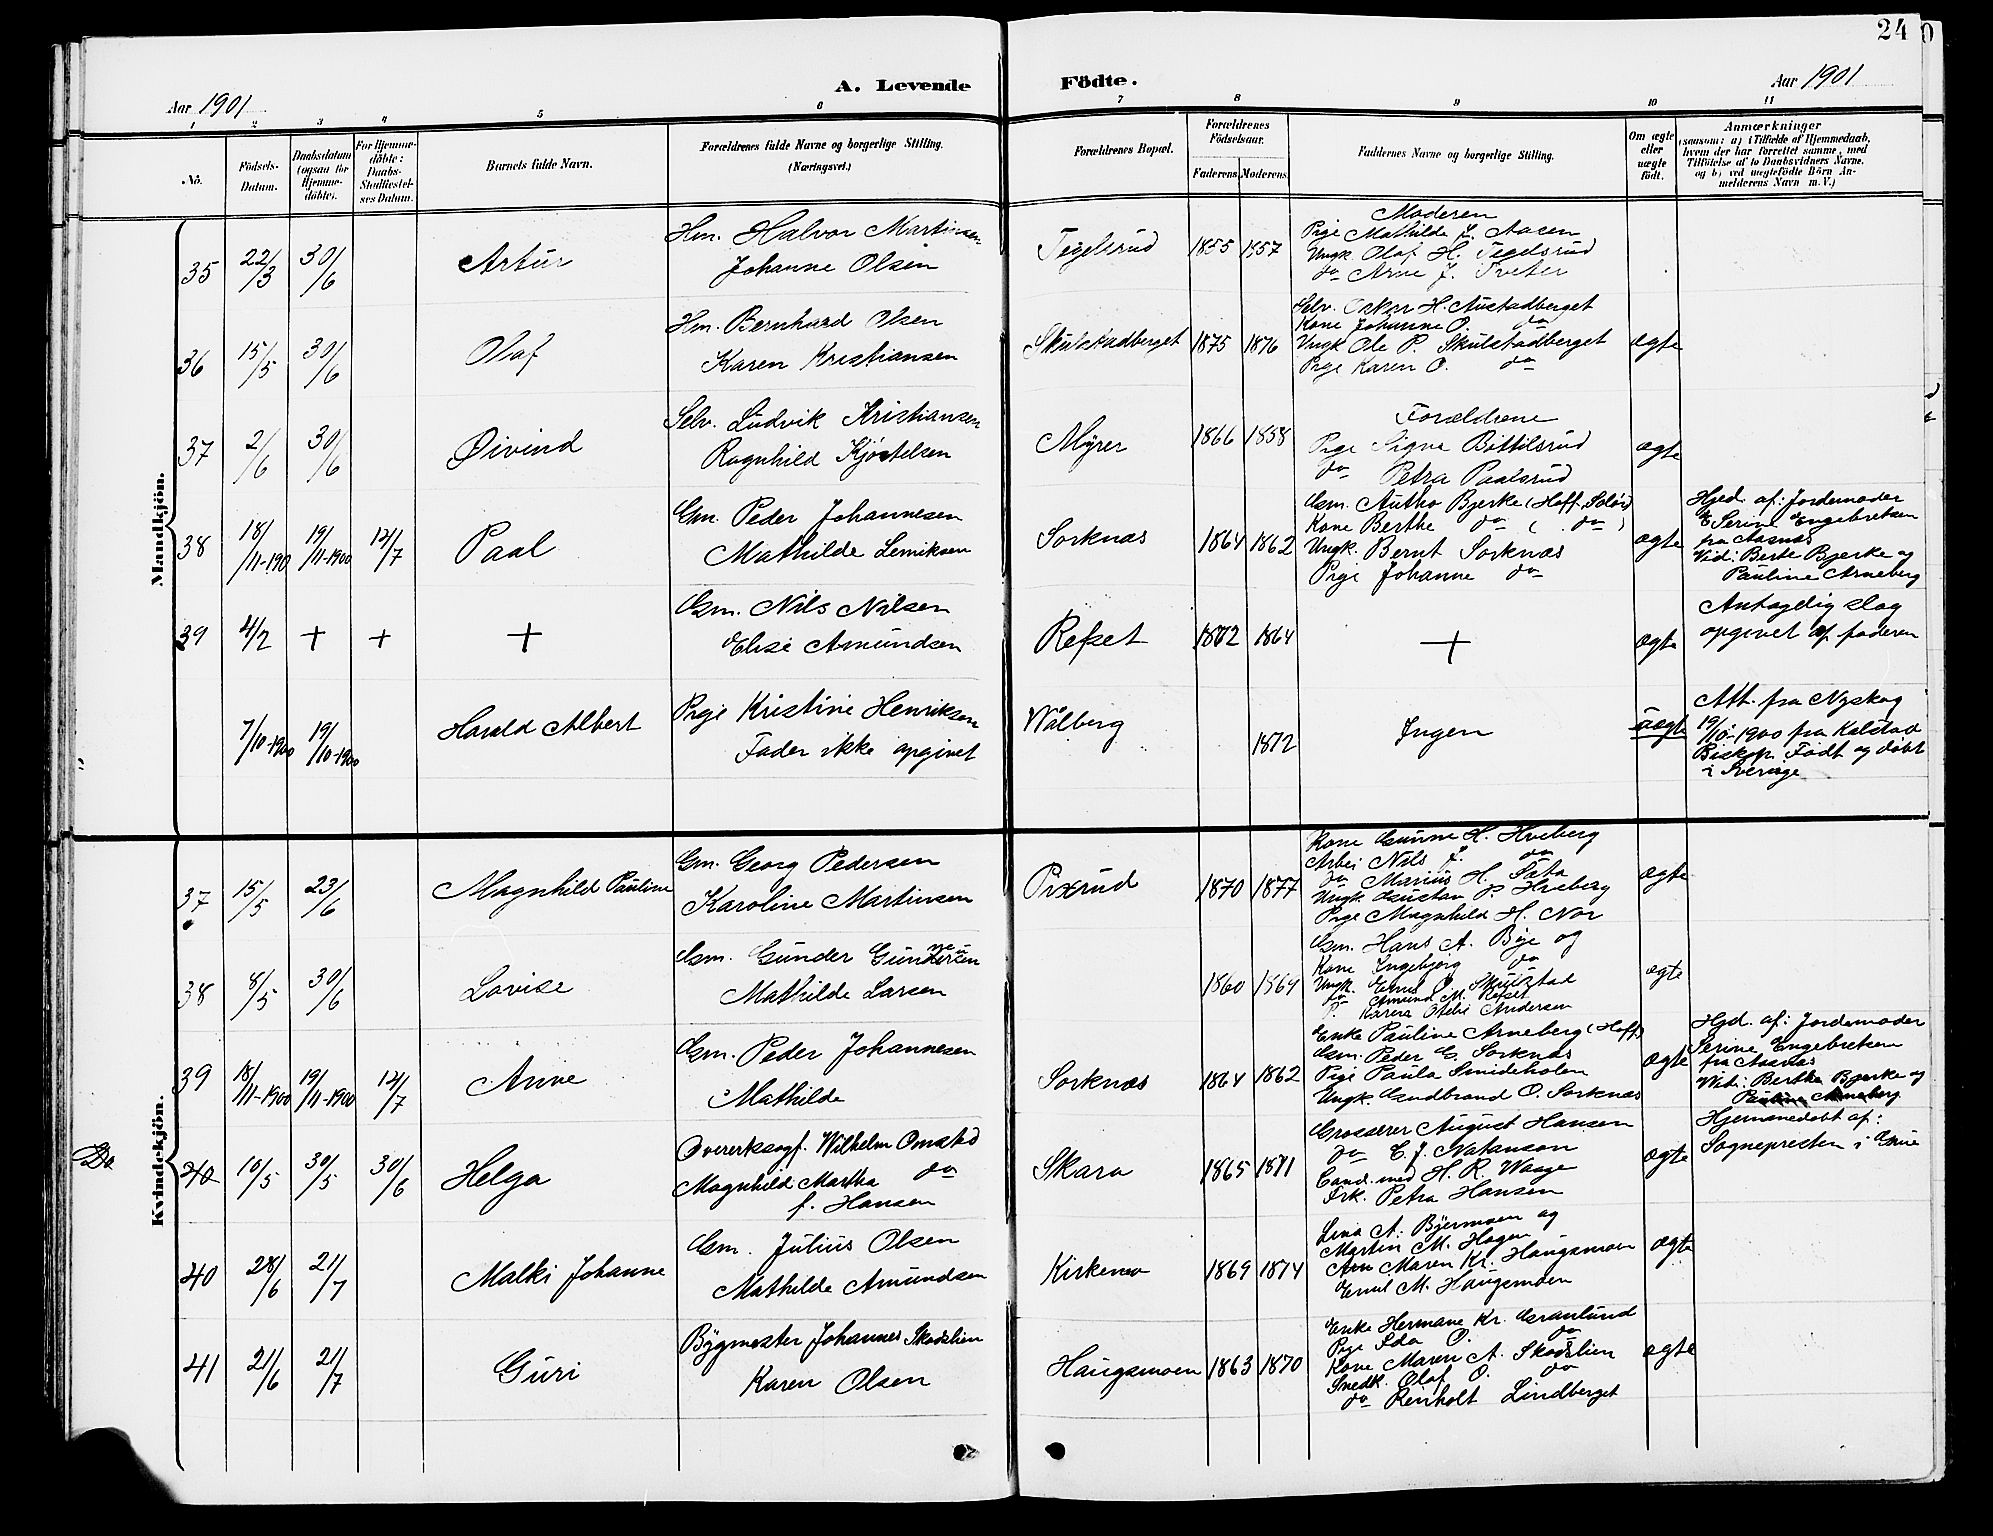 24
Aar 1901
A. Levende Födte.
Aar 1901
1 2 3 4 5 6 7 8 9 10 11
No.
Födsels-Datum.
Daabsdatum (ogsaa for Hjemme-döbte).
For Hjemme-döbte: Daabs-Stadfæstel-ses Datum.
Barnets fulde Navn.
Forældrenes fulde Navne og borgerlige Stilling. (Næringsvei.)
Forældrenes Bopæl.
Forældrenes Födselsaar.
Faderens. Moderens.
Faddernes Navne og borgerlige Stilling.
Om ægte eller uægte födt.
Anmærkninger
(saasom: a) i Tilfælde af Hjemmedaab,
hvem der har forrettet samme, med
Tilföielse af to Daabsvidners Navne,
og b) ved uægtefödte Börn An-
melderens Navn m. V.)
Mandkjön.
35 22/3 30/6 Artur
Hm. Halvor Martinsen
Johanne Olsen
Tegelsrud 1855 1857
Moderen
Pige Mathilde J. Aasen
Ungk. Olaf H. Tegelsrud
do Arne J. Tveter
36 15/5 30/6 Olaf
Hm. Bernhard Olsen
Karen Kristiansen
Skulstadberget 1875 1876
Selv. Oskar H. Austadberget
Kone Johanne O. do
Ungk Ole P. Skulstadberget
Pige Karen O. do
ægte
37 2/6 30/6 Øivind
Selv. Ludvik Kristiansen
Ragnhild Kjøstelsen
Myrer 1866 1858
Forældrene
Pige Signe Bottilsrud
do Petra Paalsrud
ægte
38 18/11-190 19/11-1900 12/7 Paal
Gm. Peder Johannesen
Mathilde Lemiksen
Sorknæs 1864 1862
Gm. Autho Bjerke (Hoff, Solør)
Kone Berthe do ( do )
Ungk. Bernt Sorknæs
Pige Johanne do
ægte
Hjed. af: Jordemoder
Serine Engebretsen
fra Aasnæs
Vid: Berte Bjerke og
Pauline Arneberg
39 4/2 + + +
Gm. Nils Nilsen
Elise Amundsen
Refset 1872 1864
+
ægte
Antagelig slag
opgivet af faderen
7/10-1900 19/10-1900 Harald Albert
Pige Kristine Henriksen
Fader ikke opgivet
Wålberg 1872
Ingen
uægte
Att. fra Nyskog
19/10-1900 fra Kalstad
Biskop. Født og døbt
i Sverige
Kvindekjön.
37 15/5 23/6 Magnhild Pauline
Gm. Georg Pedersen
Karoline Martinsen
Prxrud 1870 1877
Kone Gunne H. Hveberg
Arbei Nils J. do
do Marius H. Fata
Ungk. Gustav P. Hveberg
Pige Magnhild H. Nor
ægte
38 8/5 30/6 Lovise
Gm. Gunder Gundersen
Mathilde Larsen
1860 1864
Gm. Hans A. Bye og
Kone Ingebjørg do
Ungk. Emil O. Skulstad
do Amund M. Refset
P. Karen Otelie Andersen
ægte
39 18/11-1900 19/11-1900 12/7 Anne
Gm. Peder Johannesen
Mathilde
Sorknæs 1864 1862
Enke Pauline Arneberg (Hoff)
Gm. Peder G. Sorknæs
Pige Paula Smideholen
Ungk. Gudbrand O. Sorknæs
ægte
Hjd. af: Jordemoder
Serine Engebretsen
fra Aasnæs
Wid: Berthe Bjerke og
Pauline Arneberg
Do
40 10/5 30/5 30/6 Helga
Overerksogf. Wilhelm Omsted
Magnhild Martha do
f. Hansen
Skara 1865 1871
Grosserer August Hansen
do E. J. Natanson
Cand. med H. R. Waage
Frk. Petra Hansen
ægte
Hjemmedøbt af:
Sognepresten i Grue
40 28/6 21/7 Malki Johanne
Gm. Julius Olsen
Mathilde Amundsen
Kirkemo 1869 1874
Lina A. Bjermoen og
Martin M. Hagen
Maren Kr. Haugsmoen
Emil M. Haugsmoen
ægte
41 21/6 21/7 Guri
Bygmester Johannes Skodslien
Karen Olsen
Haugsmoen 1863 1870
Enke Hermane Kr. Granlund
Pige Ida O. do
Kone Maren A. Skodslien
Snedk. Olaf O. do
do Reinholt Lindberget
ægte